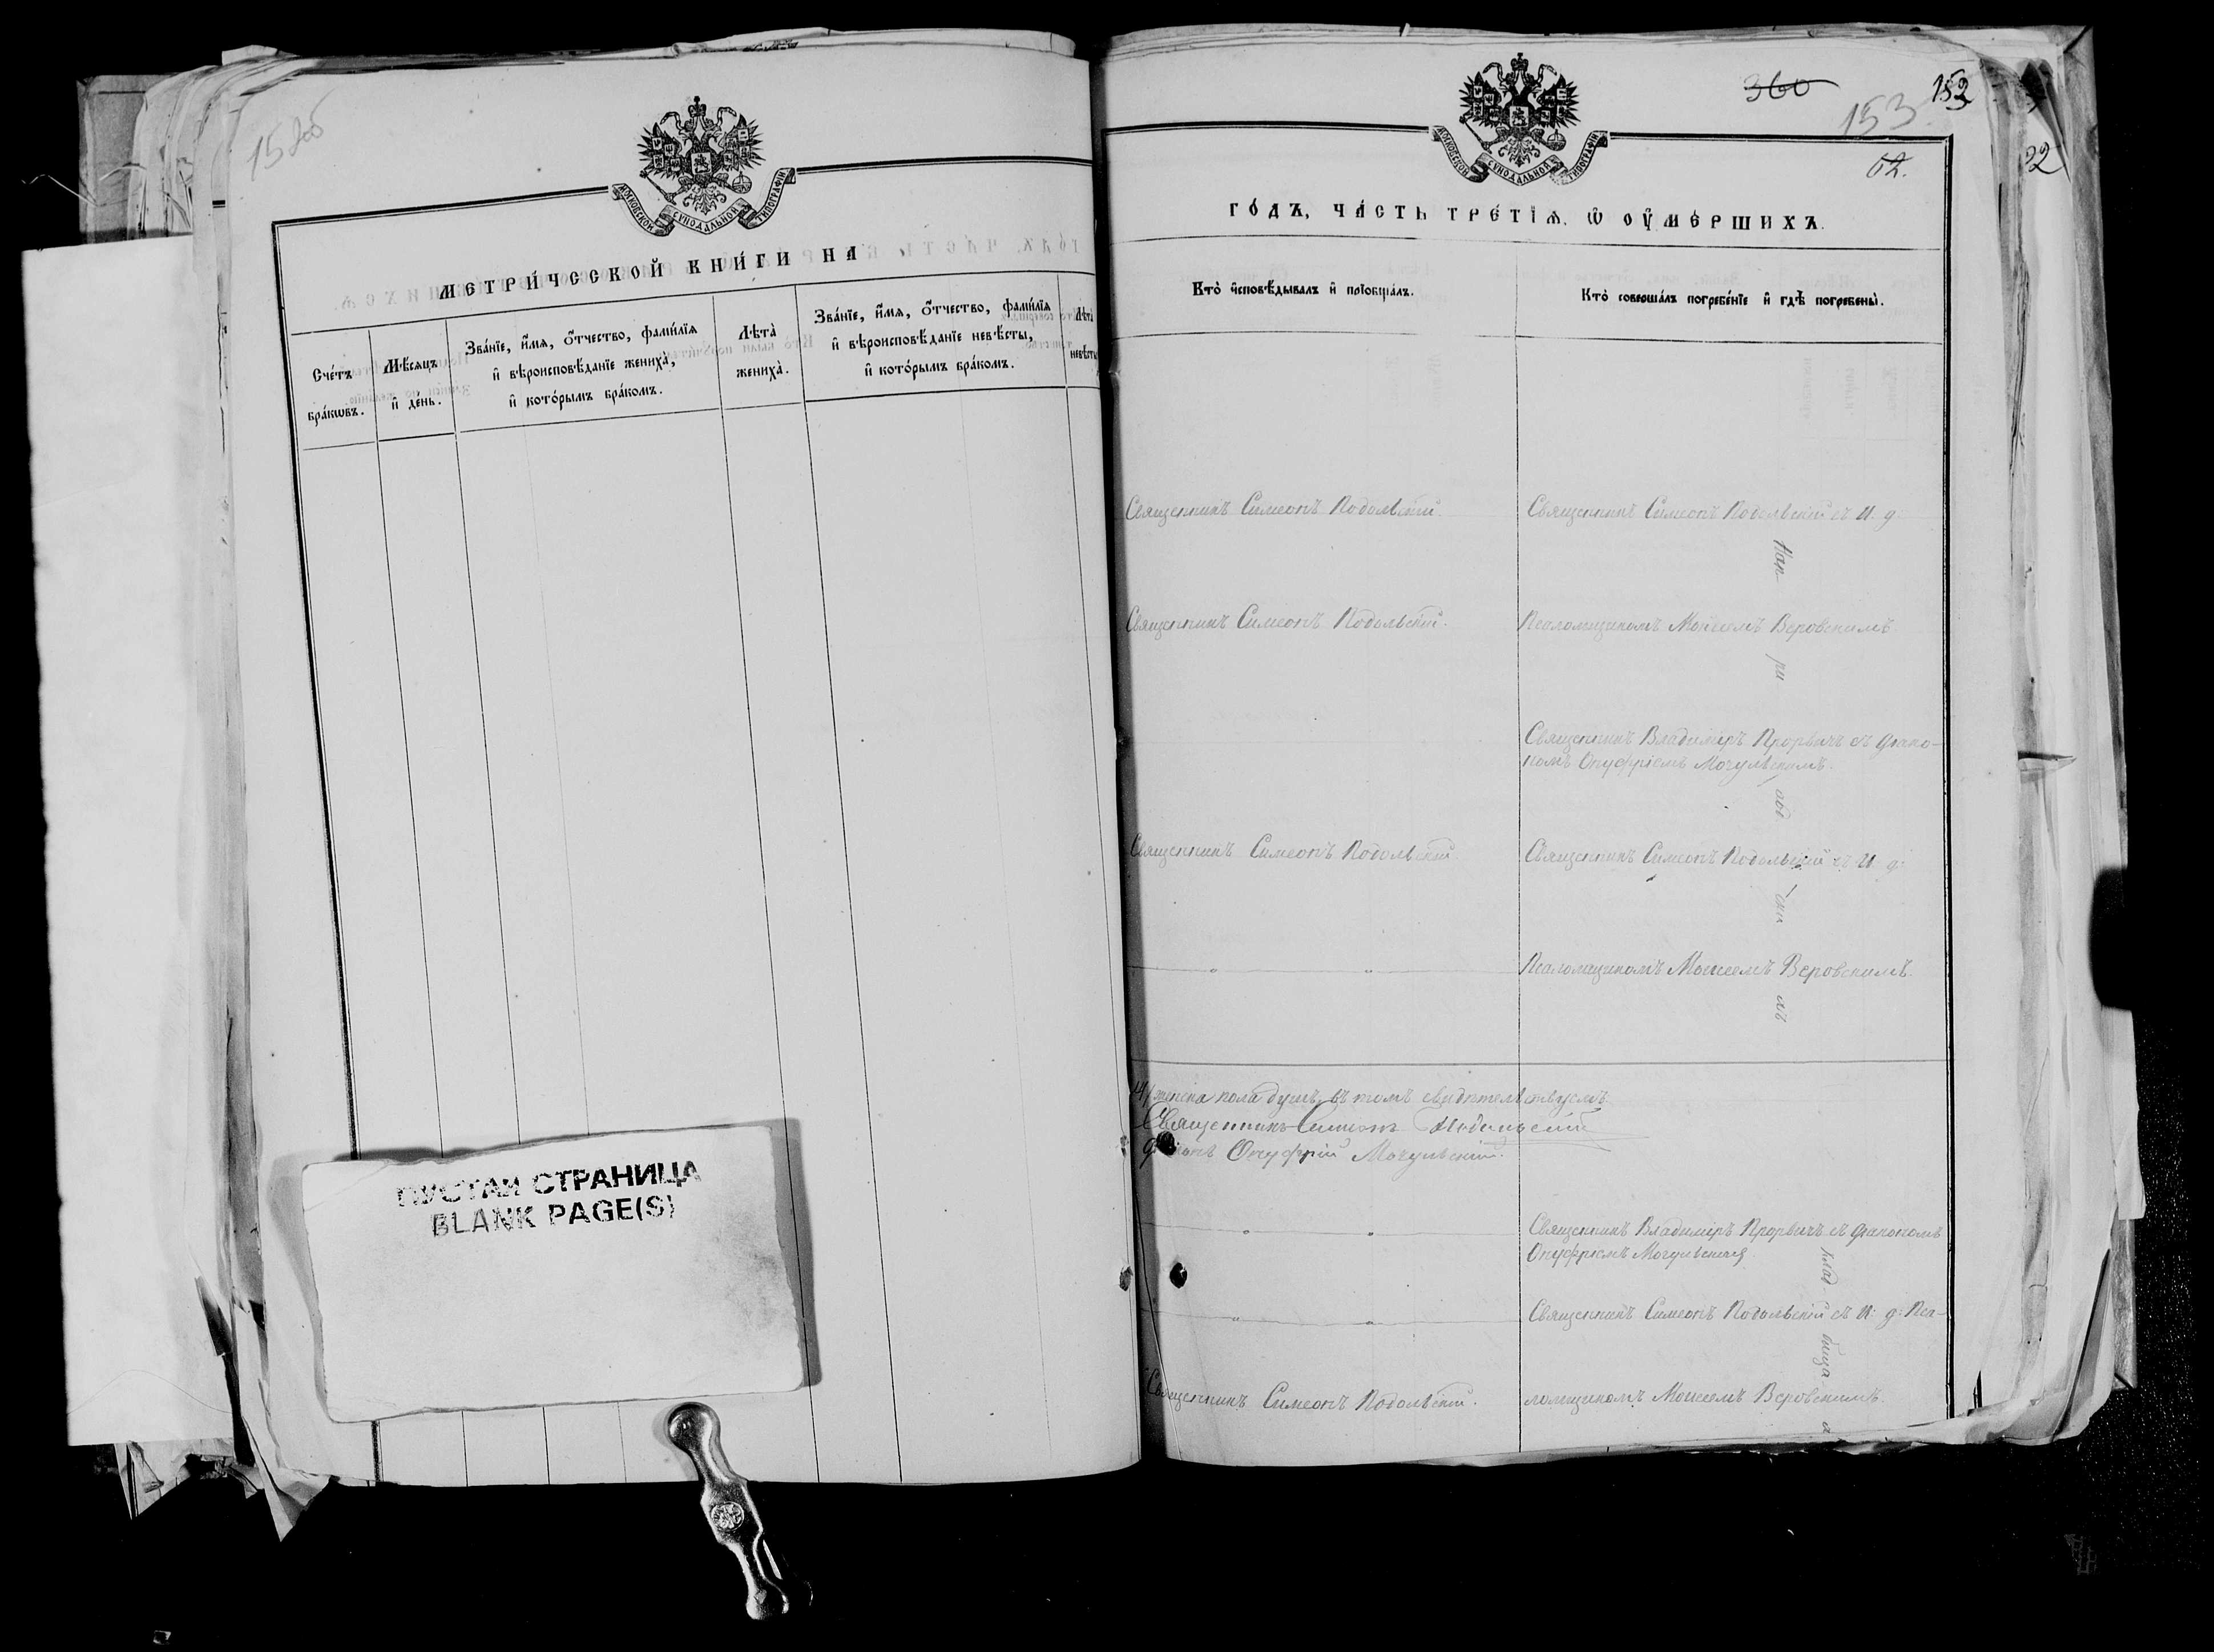 158об
МОСКОВСКОЙ СѴНОДАЛЬНОЙ ТИПОГРАФІИ
МЕТРИ́ЧЕСКОЙ КНИ́ГИ НА
Сче́тъ бра́кѡвъ.
Мѣ́сяцъ и҆ де́нь.
Зва́нїе, и҆́мѧ, ѻ҆́тчество, фами́лїѧ
и҆ вѣроисповѣ́данїе жениха̀,
и҆ кото́рымъ бра́комъ.
Лѣта̀ жениха̀.
Зва́нїе, и҆́мѧ, ѻ҆́тчество, фами́лїѧ
и҆ вѣроисповѣ́данїе невѣ́сты,
и҆ кото́рымъ бра́комъ.
Лѣта̀
невѣ́сты
ПУСТАЯ СТРАНИЦА
BLANK PAGE(S)
360
153
153
62.
22
МОСКОВСКОЙ СѴНОДАЛЬНОЙ ТИПОГРАФІИ
ГО́ДЪ, ЧА́СТЬ ТРЕ́ТЇѦ, Ѽ ОУ҆МЕ́РШИХЪ.
Кто̀ и҆сповѣ́дывалъ и҆ прїобща́лъ.
Кто̀ соверша́лъ погребе́нїе и҆ гдѣ̀ погребены̀.
Священникъ Симеонъ Подольскій.
Священникъ Симеонъ Подольскій съ И. д.
На
Священникъ Симеонъ Подольскій.
Псаломщикомъ Моисеемъ Веровскимъ
Священникъ Владиміръ Прорвичъ съ діако-
номъ Онуфріемъ Могульскимъ.
Священникъ Симеонъ Подольскій
Священникъ Симеонъ Подольскій съ И. д.
Псаломщикомъ Моисеемъ Веровскимъ.
женска пола душъ, въ томъ свидѣтельствуемъ.
Священникъ Симеонъ Подольскій
Онуфрій Могульскій.
Священникъ Владиміръ Прорвичъ съ діакономъ
Онуфріемъ
Священникъ Симеонъ Подольскій съ И. д. Пса-
клад
бища
Священникъ Симеонъ Подольскій.
ломщикомъ Моисеемъ Веровскимъ.